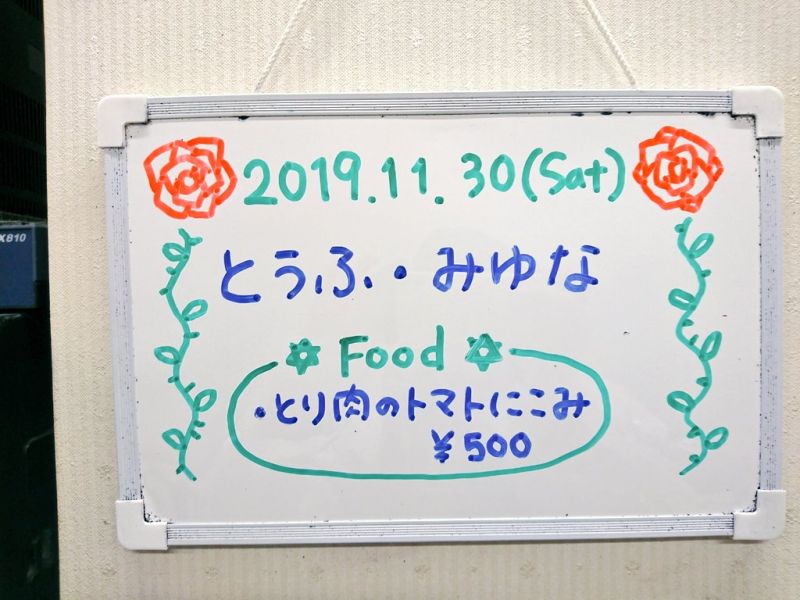 2019.11.30(Sat)
とうふ・みゆな
Food
・とり肉のトマトにこみ
¥500
X810